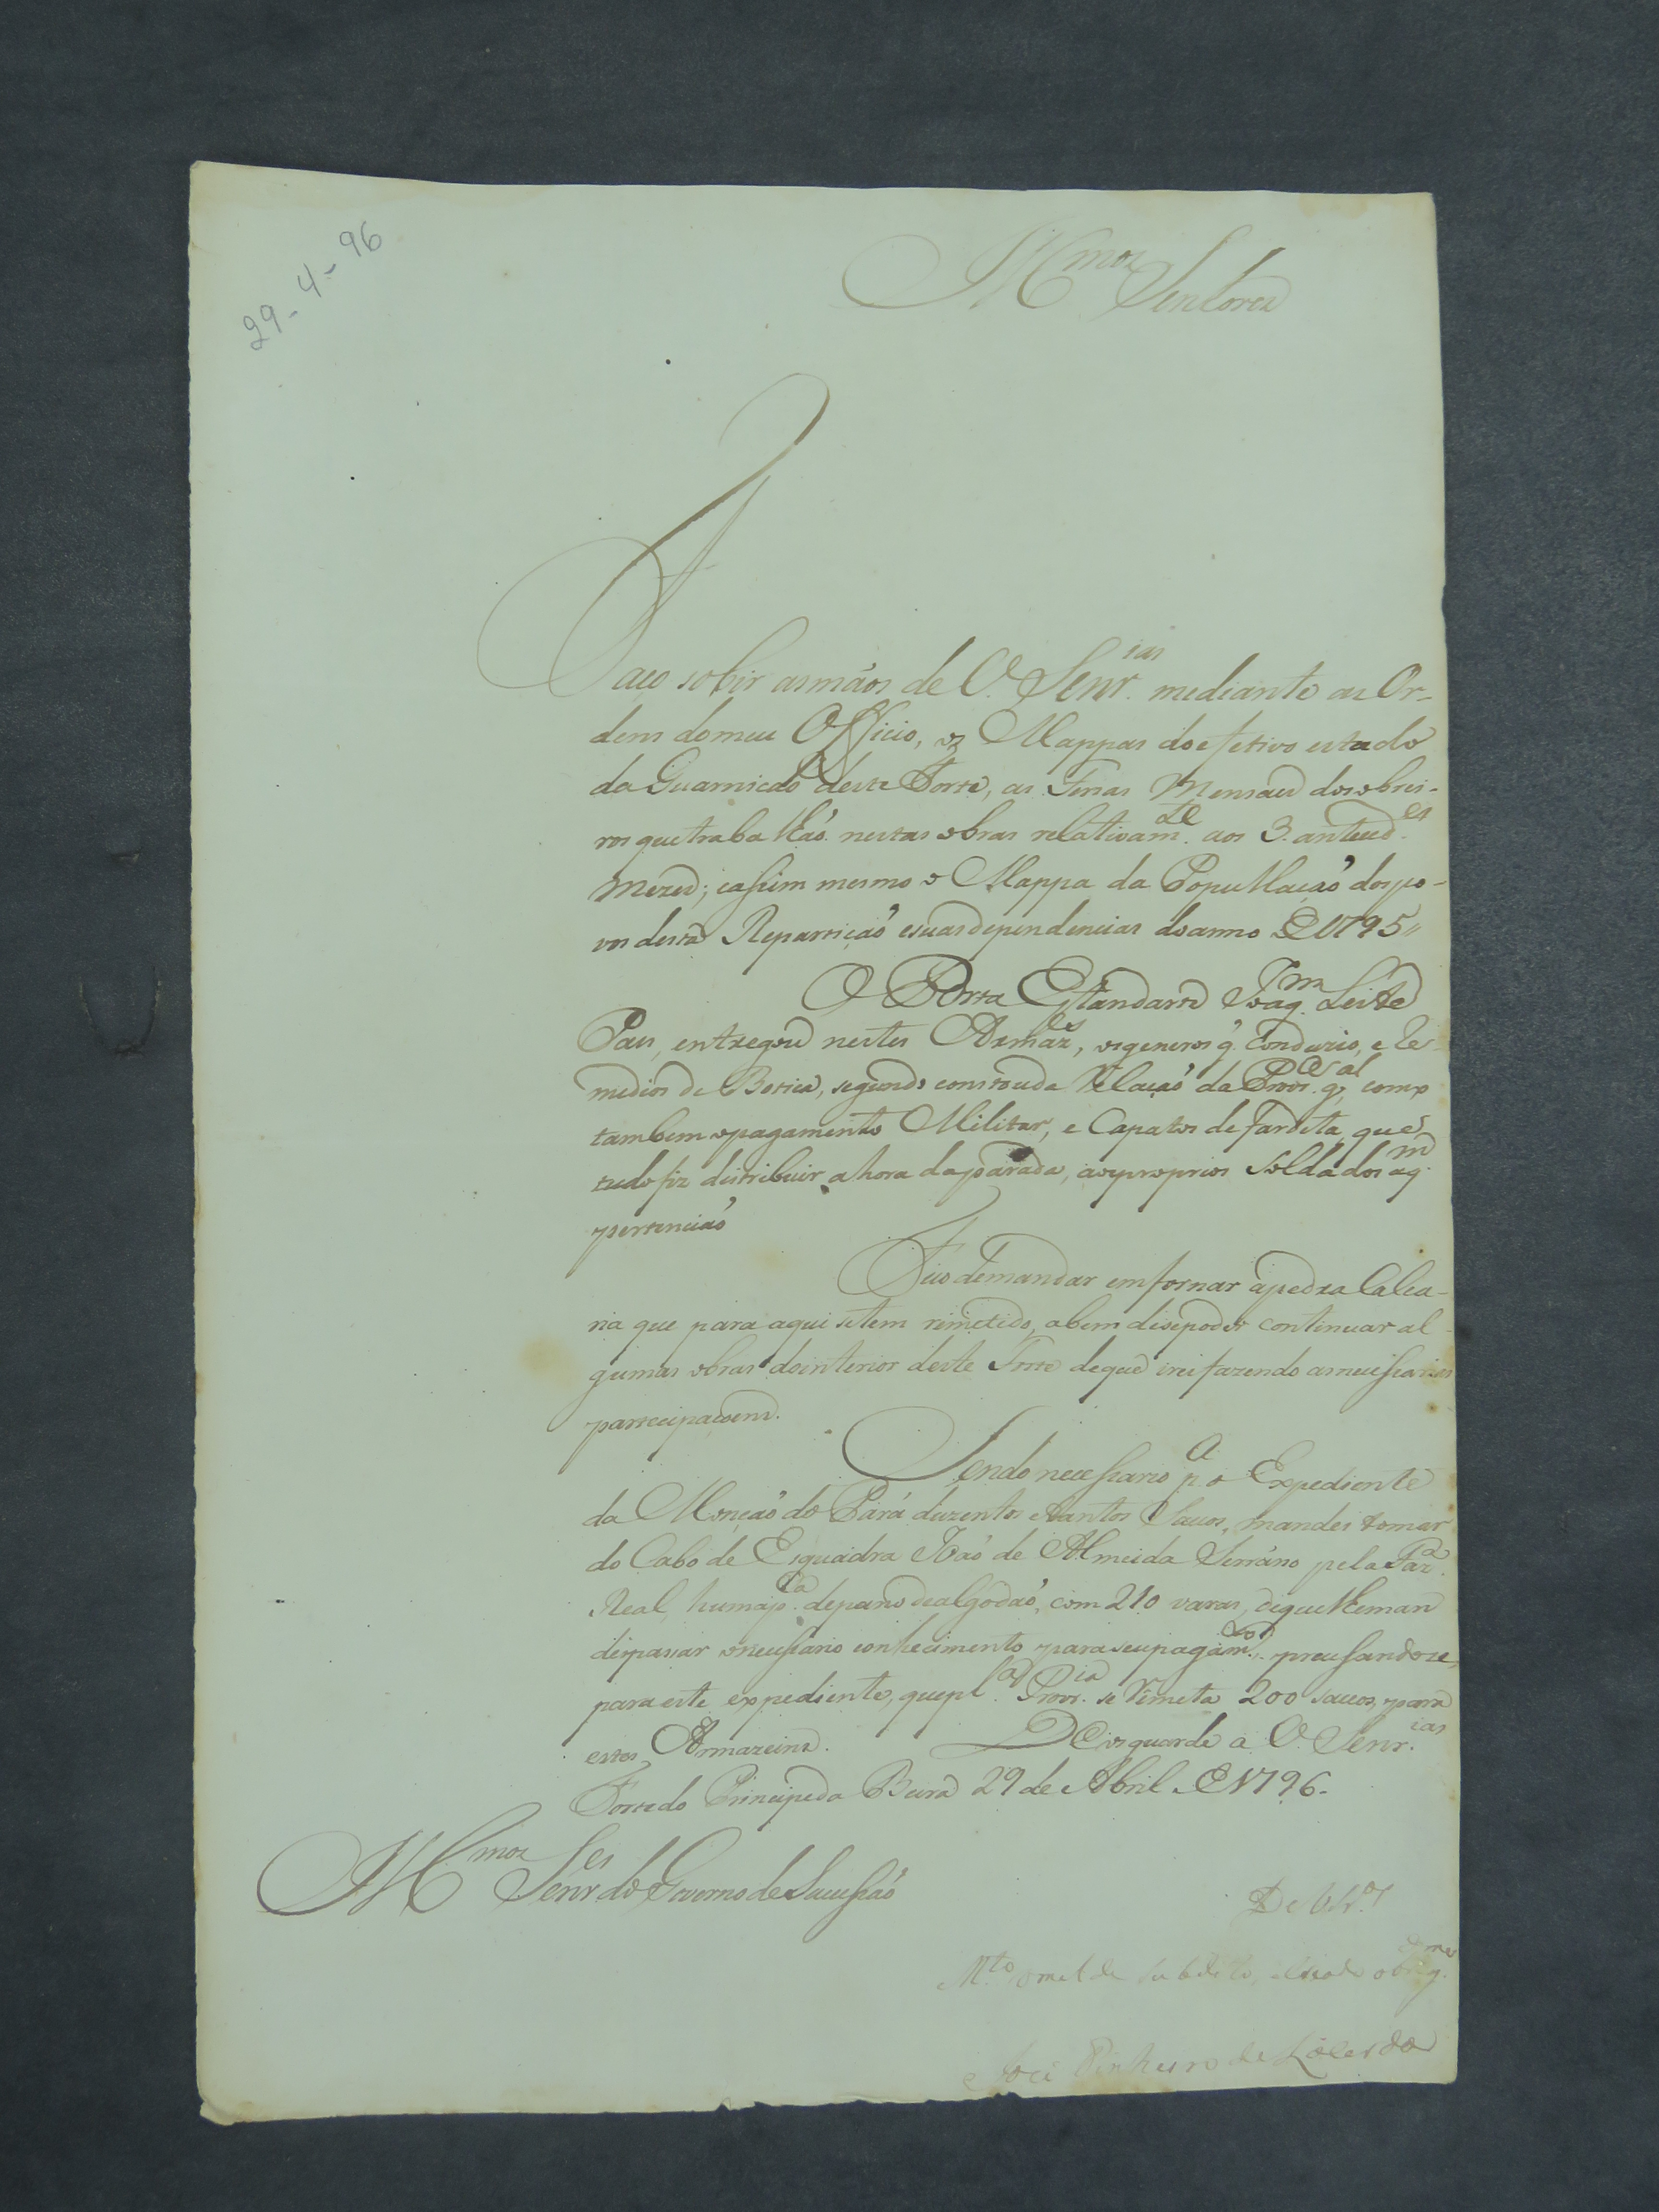 29-4-96
Illmos Senhores
Faço sobir as mãos de V. Senr.ias mediante as Or-
dens do meu Officio, os Mappas do efetivo estado
da Guarnicaõ deste Forte, as Ferias Mensaes dos obrei-
ros que trabalhaõ nestas obras relativam.te aos 3. anteced.es
Mezes; e assim mesmo o Mappa da Popullaçaõ dos po-
vos desta Repartiçaõ e suas dependencias do anno de 1795,,
O Porta Estandarte Joaq.m Leite
Paes, entregou nestes Armaz.es, os generos q. conduzio, e Re-
medios de Botica, segundo consta da Relaçaõ da Provr. como
tambem o pagamento Militar, e Capatos de fardeta, que
tudo fiz distribuir a hora da parada, aos proprios Soldados aq.m
pertenciaõ
Fico de mandar emfornar a pedra Calca-
ria que para aqui se tem rimetido, a bem dise poder continuar al-
gumas obras do interior deste Forte de que irei fazendo as necessarias
partecipaçoens.
Sendo necessario p.a o Expediente
da Monçaõ do Pará duzentos e tantos Sacos, mandei tomar
do Cabo de Esquadra Joaõ de Almeida Serrano pela Faz.a
Real, huma p.ca de pano de algodaõ, com 210 varas, de que lhe man-
dei passar o necessario conhecimento para seu pagam.to, precessandose,
para este expediente, que pl.a Prov.ia se Rimeta 200 sacos, para
estes Armazeins. Deos guarde a V. Senr.ias
Forte do Principe da Beira 29 de Abril de 1796.
Illmos Senr.es do Governo de Sucessaõ
De V. S.as
M.to subdito, e criado obrig.mo
Joze Pinheiro de Lacerda